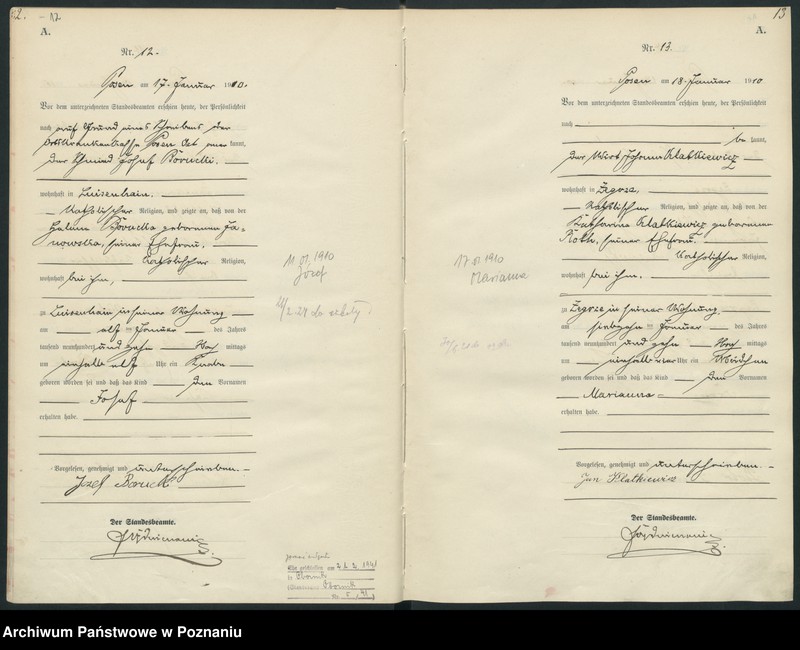 12.
A.
Nr. 12.
Posen am 17. Januar 1910.
Vor dem unterzeichneten Standesbeamten erschien heute, der Persönlichkeit
nach auf Grund eines Schreibens der
Posen Ost kannt,
der Schmied Josef Borucki.
wohnhaft in Luisenhain.
Katholischer Religion, und zeigte an, daß von der
Helena Borucka geborenen Ja-
nowska, seiner Ehefrau.
Katholischer Religion,
wohnhaft bei ihm,
zu Luisenhain in seiner Wohnung
am elf ten Januar des Jahres
tausend neunhundert und zehn Vor mittags
um einhalb elf Uhr ein Knabe
geboren worden sei und daß das Kind den Vornamen
Josef
erhalten habe.
Vorgelesen, genehmigt und unterschrieben.
Jozef Borucki
Der Standesbeamte.
11 01 1910
Józef
do szkoły
21.2.1941
13
A.
Nr. 13.
Posen am 18. Januar 1910
Vor dem unterzeichneten Standesbeamten erschien heute, der Persönlichkeit
nach
be kannt,
der Wirt Johann Klatkiewicz
wohnhaft in Zegrze,
Katholischer Religion, und zeigte an, daß von der
Katharina Klatkiewicz geborenen
Roth, seiner Ehefrau.
Katholischer Religion,
wohnhaft bei ihm.
zu Zegrze in seiner Wohnung
am siebzehn ten Januar des Jahres
tausend neunhundert und zehn Vor mittags
um einhalb vier Uhr ein Mädchen
geboren worden sei und daß das Kind den Vornamen
Marianna
erhalten habe.
Vorgelesen, genehmigt und unterschrieben.
Jan Klatkiewicz
Der Standesbeamte.
17 01 1910
Marianna
Archiwum Państwowe w Poznaniu